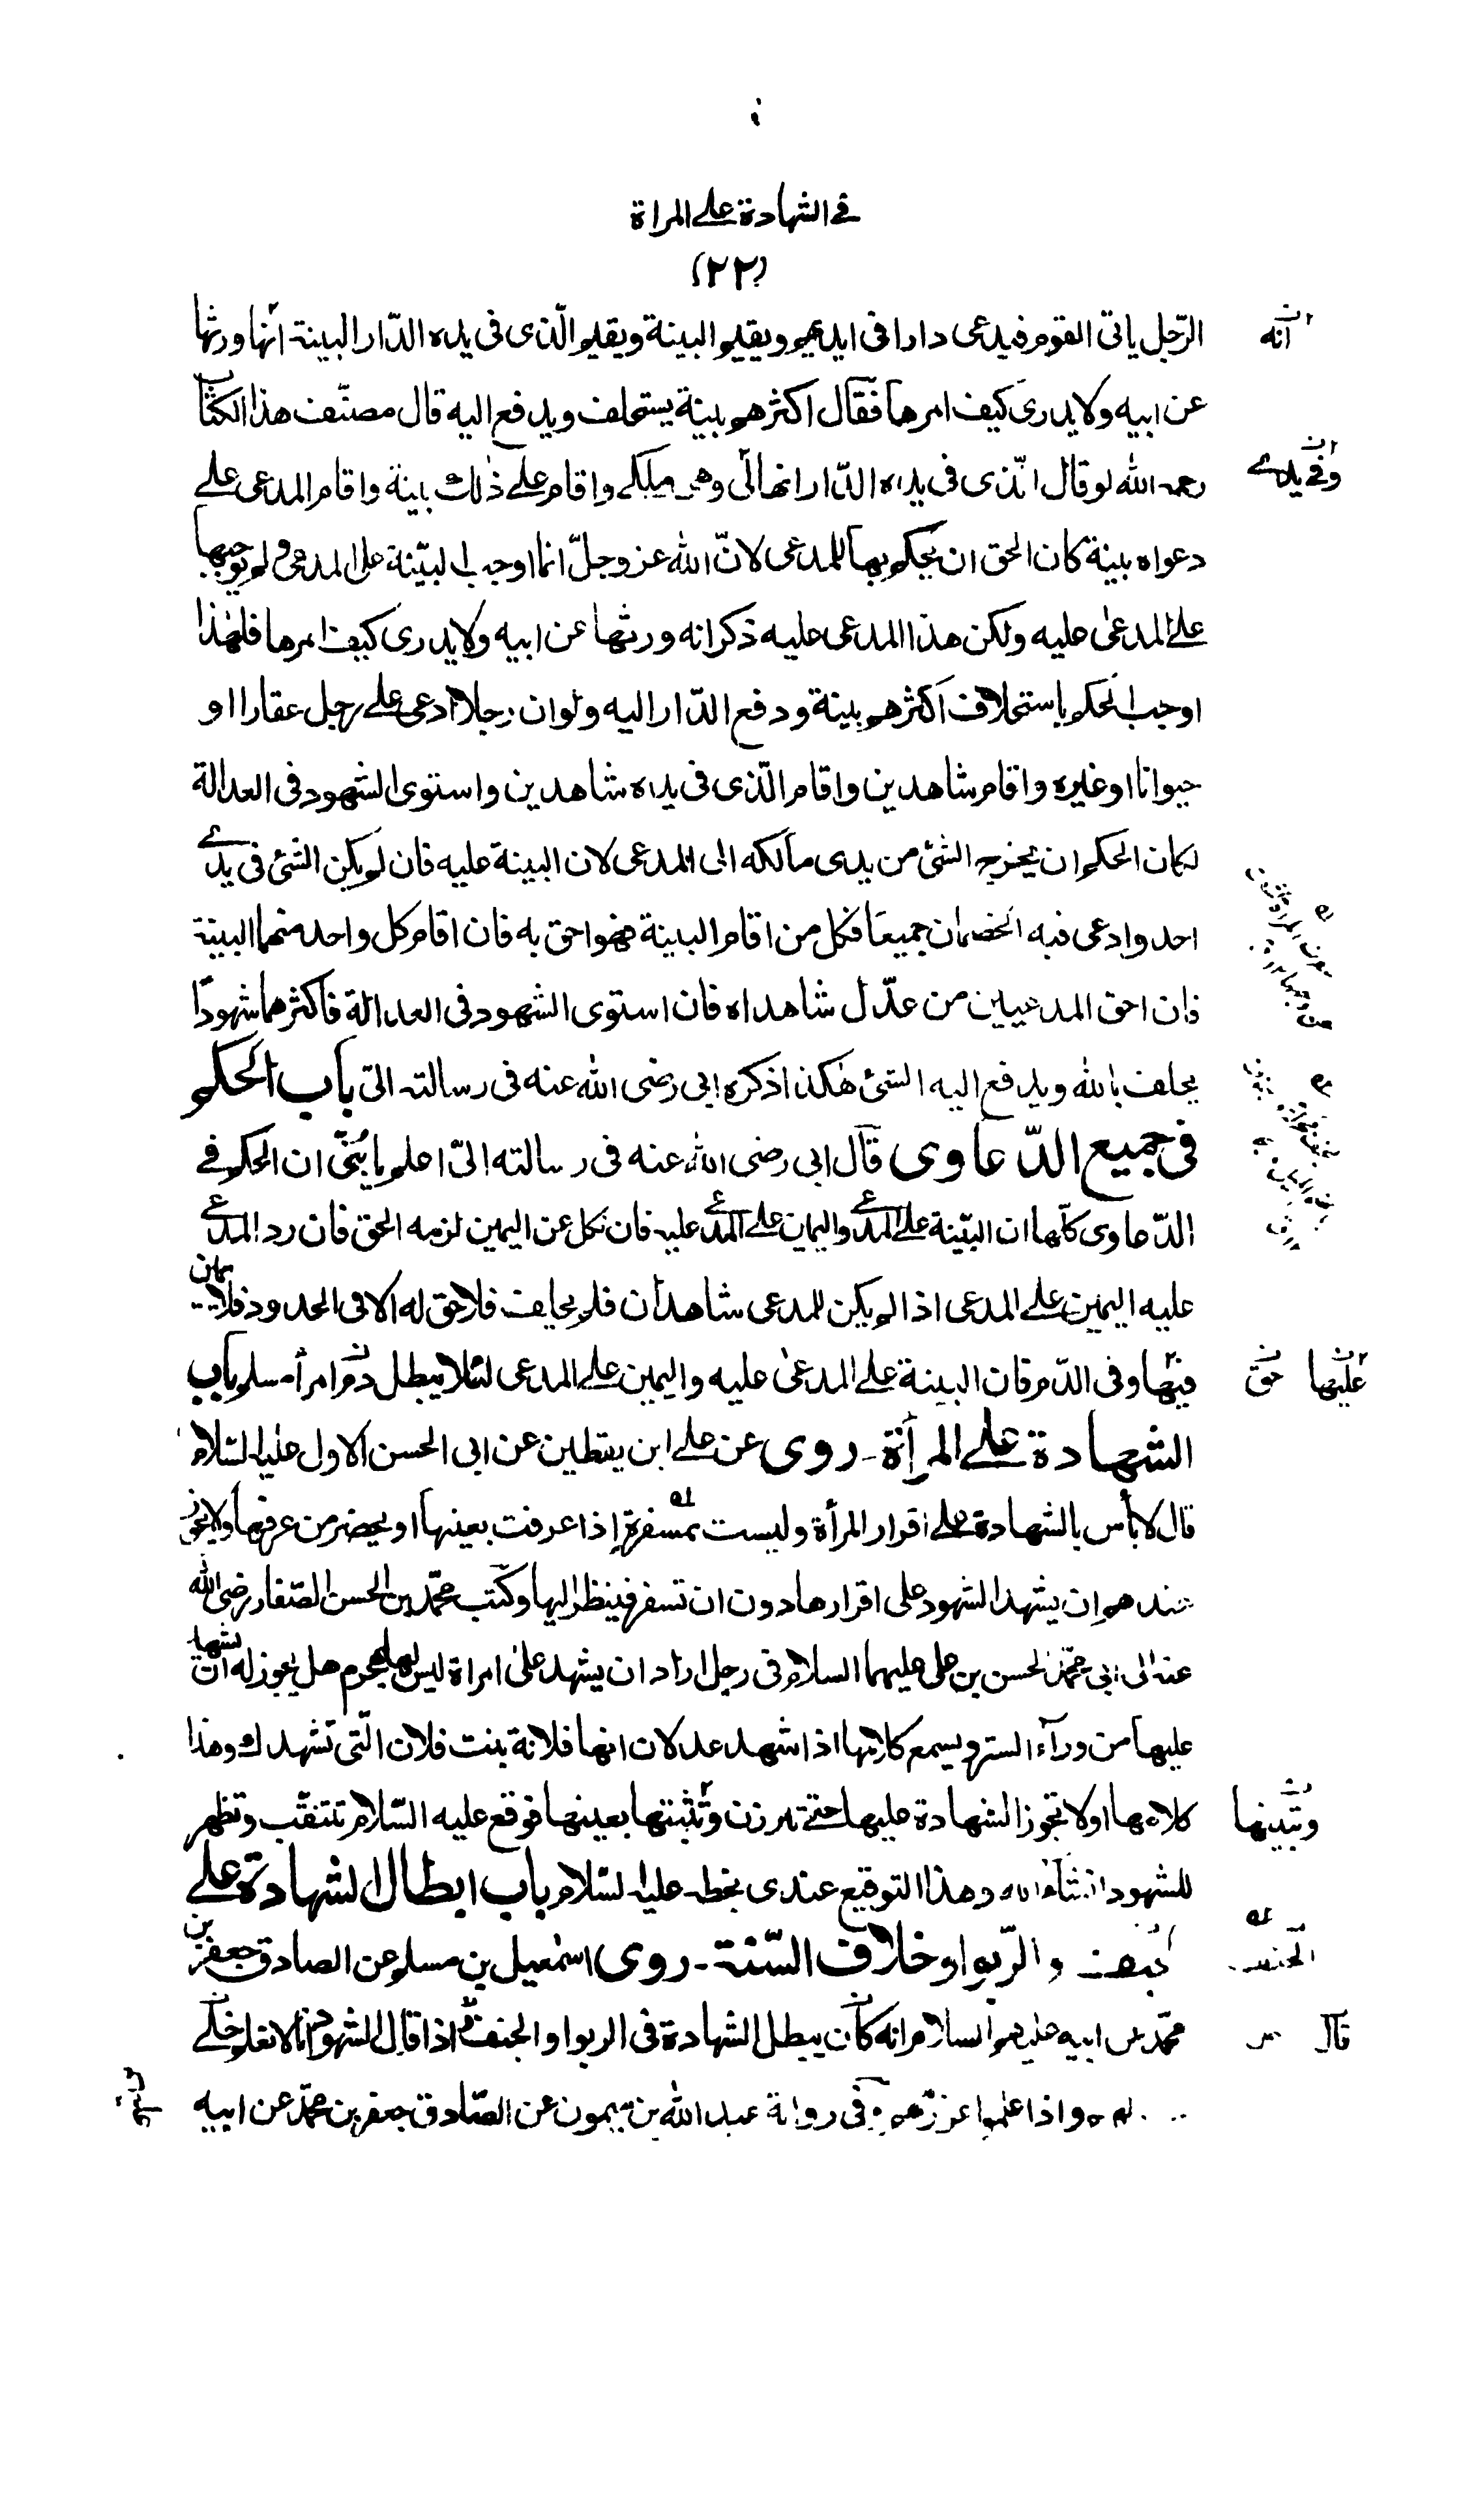 في الشهادة على المراة
(٢٢)
الرّجل ياتى القوم فيدعى دارا فى ايديهم ويقيم البينة ويقيم الّذى فى يده الدّار البينة انّها ورثها
عن ابيه ولا يدرى كيف امرها فقال اكثرهم بينة يستحلف ويدفع اليه قال مصنّف هذا الكتاب
رحمه الله لو قال الّذى فى يده الدّار انها لى وهى ملكى واقام على ذلك بينة واقام المدعى على
دعواه بينة كان الحق ان يحكم بها للمدعى لانّ الله عز وجلّ انما اوجب البيّنة على المدعى ولم يوجبها
على المدعى عليه ولكن هذا المدعى عليه ذكر انه ورثها عن ابيه ولا يدرى كيف امرها فلهذا
اوجب الحكم باستحلاف اكثرهم بينة ودفع الدّار اليه ولو ان رجلا ادعى على رجل عقارا او
حيوانا او غيره واقام شاهدين واقام الّذى فى يده شاهدين واستوى الشهود فى العدالة
لكان الحكم ان يخرج الشئ من يدى مالكه الى المدعى لان البينة عليه فان لم يكن الشئ فى يدى
احد وادعى فيه الخصمان جميعا فكل من اقام البينة فهو احق به فان اقام كل واحد منهما البينة
فان احق المدعيين من عدّل شاهداه فان استوى الشهود فى العدالة فاكثرهما شهودًا
يحلف بالله ويدفع اليه الشئ هكذا ذكره ابى رضى الله عنه فى رسالته الىّ باب الحكم
فى جميع الدّعاوى قال ابى رضى الله عنه فى رسالته الىّ اعلم يا بُنىّ ان الحكم فى
الدّعاوى كلّها ان البيّنة على المدعى واليمين على المدعى عليه فان نكل عن اليمين لزمه الحق فان رد المدعى
عليه اليمين على المدعى اذا لم يكن للمدعى شاهدان فلم يحلف فلا حق له الا فى الحدود فلا يمين
فيها وفى الدّم فان البينة على المدعى عليه واليمين على المدعى لئلا يبطل دم امرأ مسلم باب
الشهادة على المرأة ـ روى عن على ابن يقطين عن ابى الحسن الاول عليه السّلام
قال لا بأس بالشهادة على اقرار المرأة وليست بمسفرة اذا عرفت بعينها او يحضر من عرفها ولا يجوز
عندهم ان يشهد الشهود على اقرارها دون ان تسفر فينظر اليها وكتب محمّد بن الحسن الصّفار رضى الله
عنه الى ابى محمّد الحسن بن على عليهما السلام فى رجل اراد ان يشهد على امراة ليس لها بمحرم هل يجوز له ان يشهد
عليها من ورآء الستر ويسمع كلامها اذا شهد عدلان انها فلانة بنت فلان الّتى تشهدك وهذا
كلامها اولا تجوز الشهادة عليها حتى تبرزن وتثبتها بعينها فوقع عليه السّلام تتنقّب وتظهر
للشهود انشاء الله وهذا التوقيع عندى بخطه عليه السّلام باب ابطال الشهادة على
الجنف والرّبوا وخلاف السّنة ـ روى اسمعيل بن مسلم عن الصادق جعفر بن
محمّد عن ابيه عليهم السلام انه كان يبطل الشهادة فى الربوا والجنف اذا قال الشهود انا لا نعلم خلى
واذا علموا عزرهم وفى رواية عبد الله بن ميمون عن الصّادق جعفر بن محمّد عن ابيه
انه
وفى يدى
عليها
حق
وتبيّنها
الجنف
قال